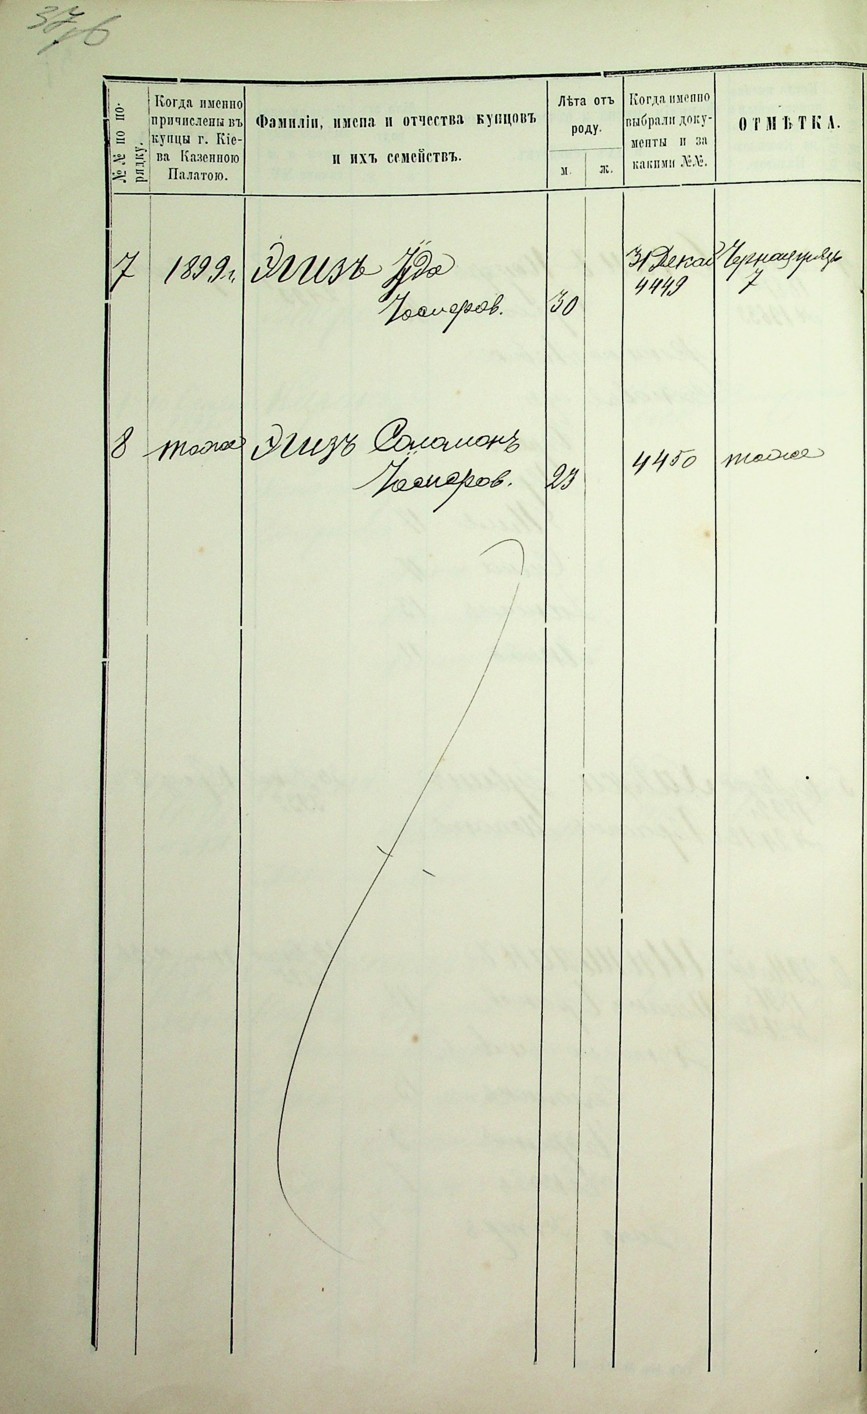 37об
№№ по по-
рядку.
Когда именно
причислены въ
купцы г. Кіе-
ва Казенною
Палатою.
Фамиліи, имена и отчества купцовъ
и ихъ семействъ.
Лѣта отъ
роду.
м.
ж.
Когда именно
выбрали доку-
менты и за
какими №№.
ОТМѢТКА.
7 1899 г. Эгизъ Іуда 31 Декаб
Іосифов. 30 4449 7
8 тоже Эгизъ Соломонъ 4450 тоже
Іосифов. 23